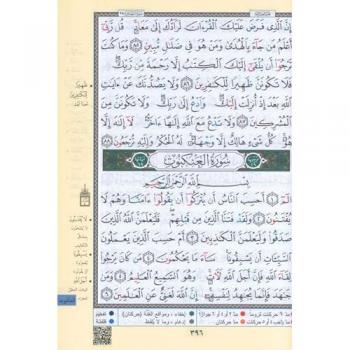 إِنَّ ٱلَّذِى فَرَضَ عَلَيْكَ ٱلْقُرْءَانَ لَرَآدُّكَ إِلَىٰ مَعَادٍ قُل رَّبِّىٓ
أَعْلَمُ مَن جَآءَ بِٱلْهُدَىٰ وَمَنْ هُوَ فِى ضَلَٰلٍ مُّبِينٍ ٨٥ وَمَا كُنتَ
تَرْجُوٓا۟ أَن يُلْقَىٰٓ إِلَيْكَ ٱلْكِتَٰبُ إِلَّا رَحْمَةً مِّن رَّبِّكَ
فَلَا تَكُونَنَّ ظَهِيرًا لِّلْكَٰفِرِينَ ٨٦ وَلَا يَصُدُّنَّكَ عَنْ ءَايَٰتِ
ٱللَّهِ بَعْدَ إِذْ أُنزِلَتْ إِلَيْكَ وَٱدْعُ إِلَىٰ رَبِّكَ وَلَا تَكُونَنَّ مِنَ
ٱلْمُشْرِكِينَ ٨٧ وَلَا تَدْعُ مَعَ ٱللَّهِ إِلَٰهًا ءَاخَرَ لَآ إِلَٰهَ إِلَّا
هُوَ كُلُّ شَىْءٍ هَالِكٌ إِلَّا وَجْهَهُۥ لَهُ ٱلْحُكْمُ وَإِلَيْهِ تُرْجَعُونَ ٨٨
سُورَةُ الْعَنْكَبُوتِ
بِسْمِ ٱللَّهِ ٱلرَّحْمَٰنِ ٱلرَّحِيمِ
الٓمٓ ١ أَحَسِبَ ٱلنَّاسُ أَن يُتْرَكُوٓا۟ أَن يَقُولُوٓا۟ ءَامَنَّا وَهُمْ لَا
يُفْتَنُونَ ٢ وَلَقَدْ فَتَنَّا ٱلَّذِينَ مِن قَبْلِهِمْ فَلَيَعْلَمَنَّ ٱللَّهُ ٱلَّذِينَ
صَدَقُوا۟ وَلَيَعْلَمَنَّ ٱلْكَٰذِبِينَ ٣ أَمْ حَسِبَ ٱلَّذِينَ يَعْمَلُونَ
ٱلسَّيِّـَٔاتِ أَن يَسْبِقُونَا سَآءَ مَا يَحْكُمُونَ ٤ مَن كَانَ يَرْجُوا۟
لِقَآءَ ٱللَّهِ فَإِنَّ أَجَلَ ٱللَّهِ لَـَٔاتٍ وَهُوَ ٱلسَّمِيعُ ٱلْعَلِيمُ ٥ وَمَن
جَٰهَدَ فَإِنَّمَا يُجَٰهِدُ لِنَفْسِهِۦٓ إِنَّ ٱللَّهَ لَغَنِىٌّ عَنِ ٱلْعَٰلَمِينَ ٦
٣٩٦
ظَهِيرًا
لِّلْكَٰفِرِينَ